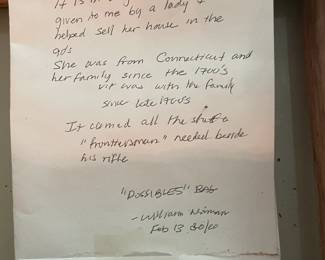 given to me by a lady I
helped sell her house in the
90s
She was from Connecticut and
her family since the 1700's
it was with the family
since late 1700's
It carried all the stuff a
"frontiersman" needed beside
his rifle
"POSSIBLES" BAG
- William
Feb 13